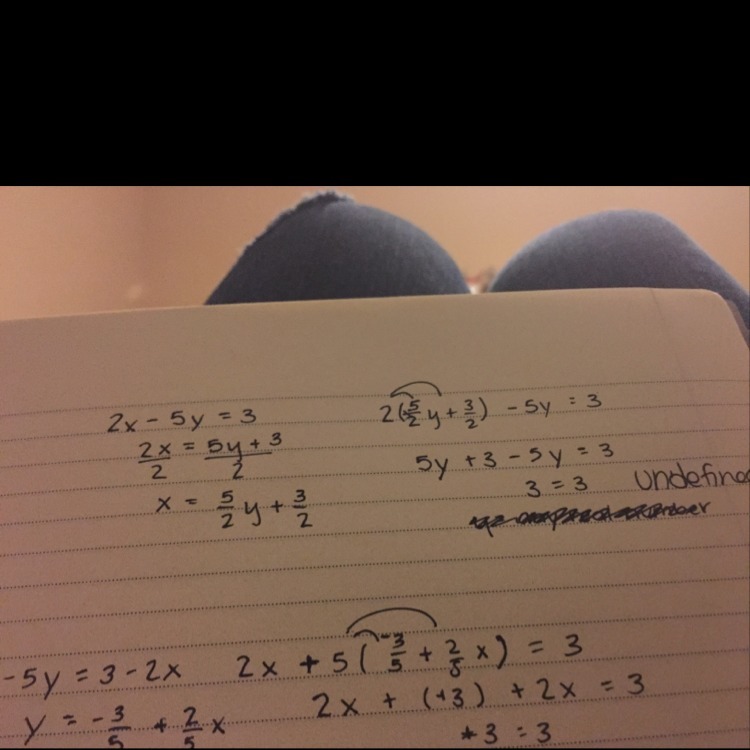 2x - 5y = 3
2x/2 = 5y + 3/2
x = 5/2 y + 3/2
2(5/2 y + 3/2) - 5y = 3
5y + 3 - 5y = 3
3 = 3 undefined
-5y = 3 - 2x
y = -3/5 + 2/5 x
2x + 5(-3/5 + 2/5 x) = 3
2x + (+3) + 2x = 3
+3 = 3